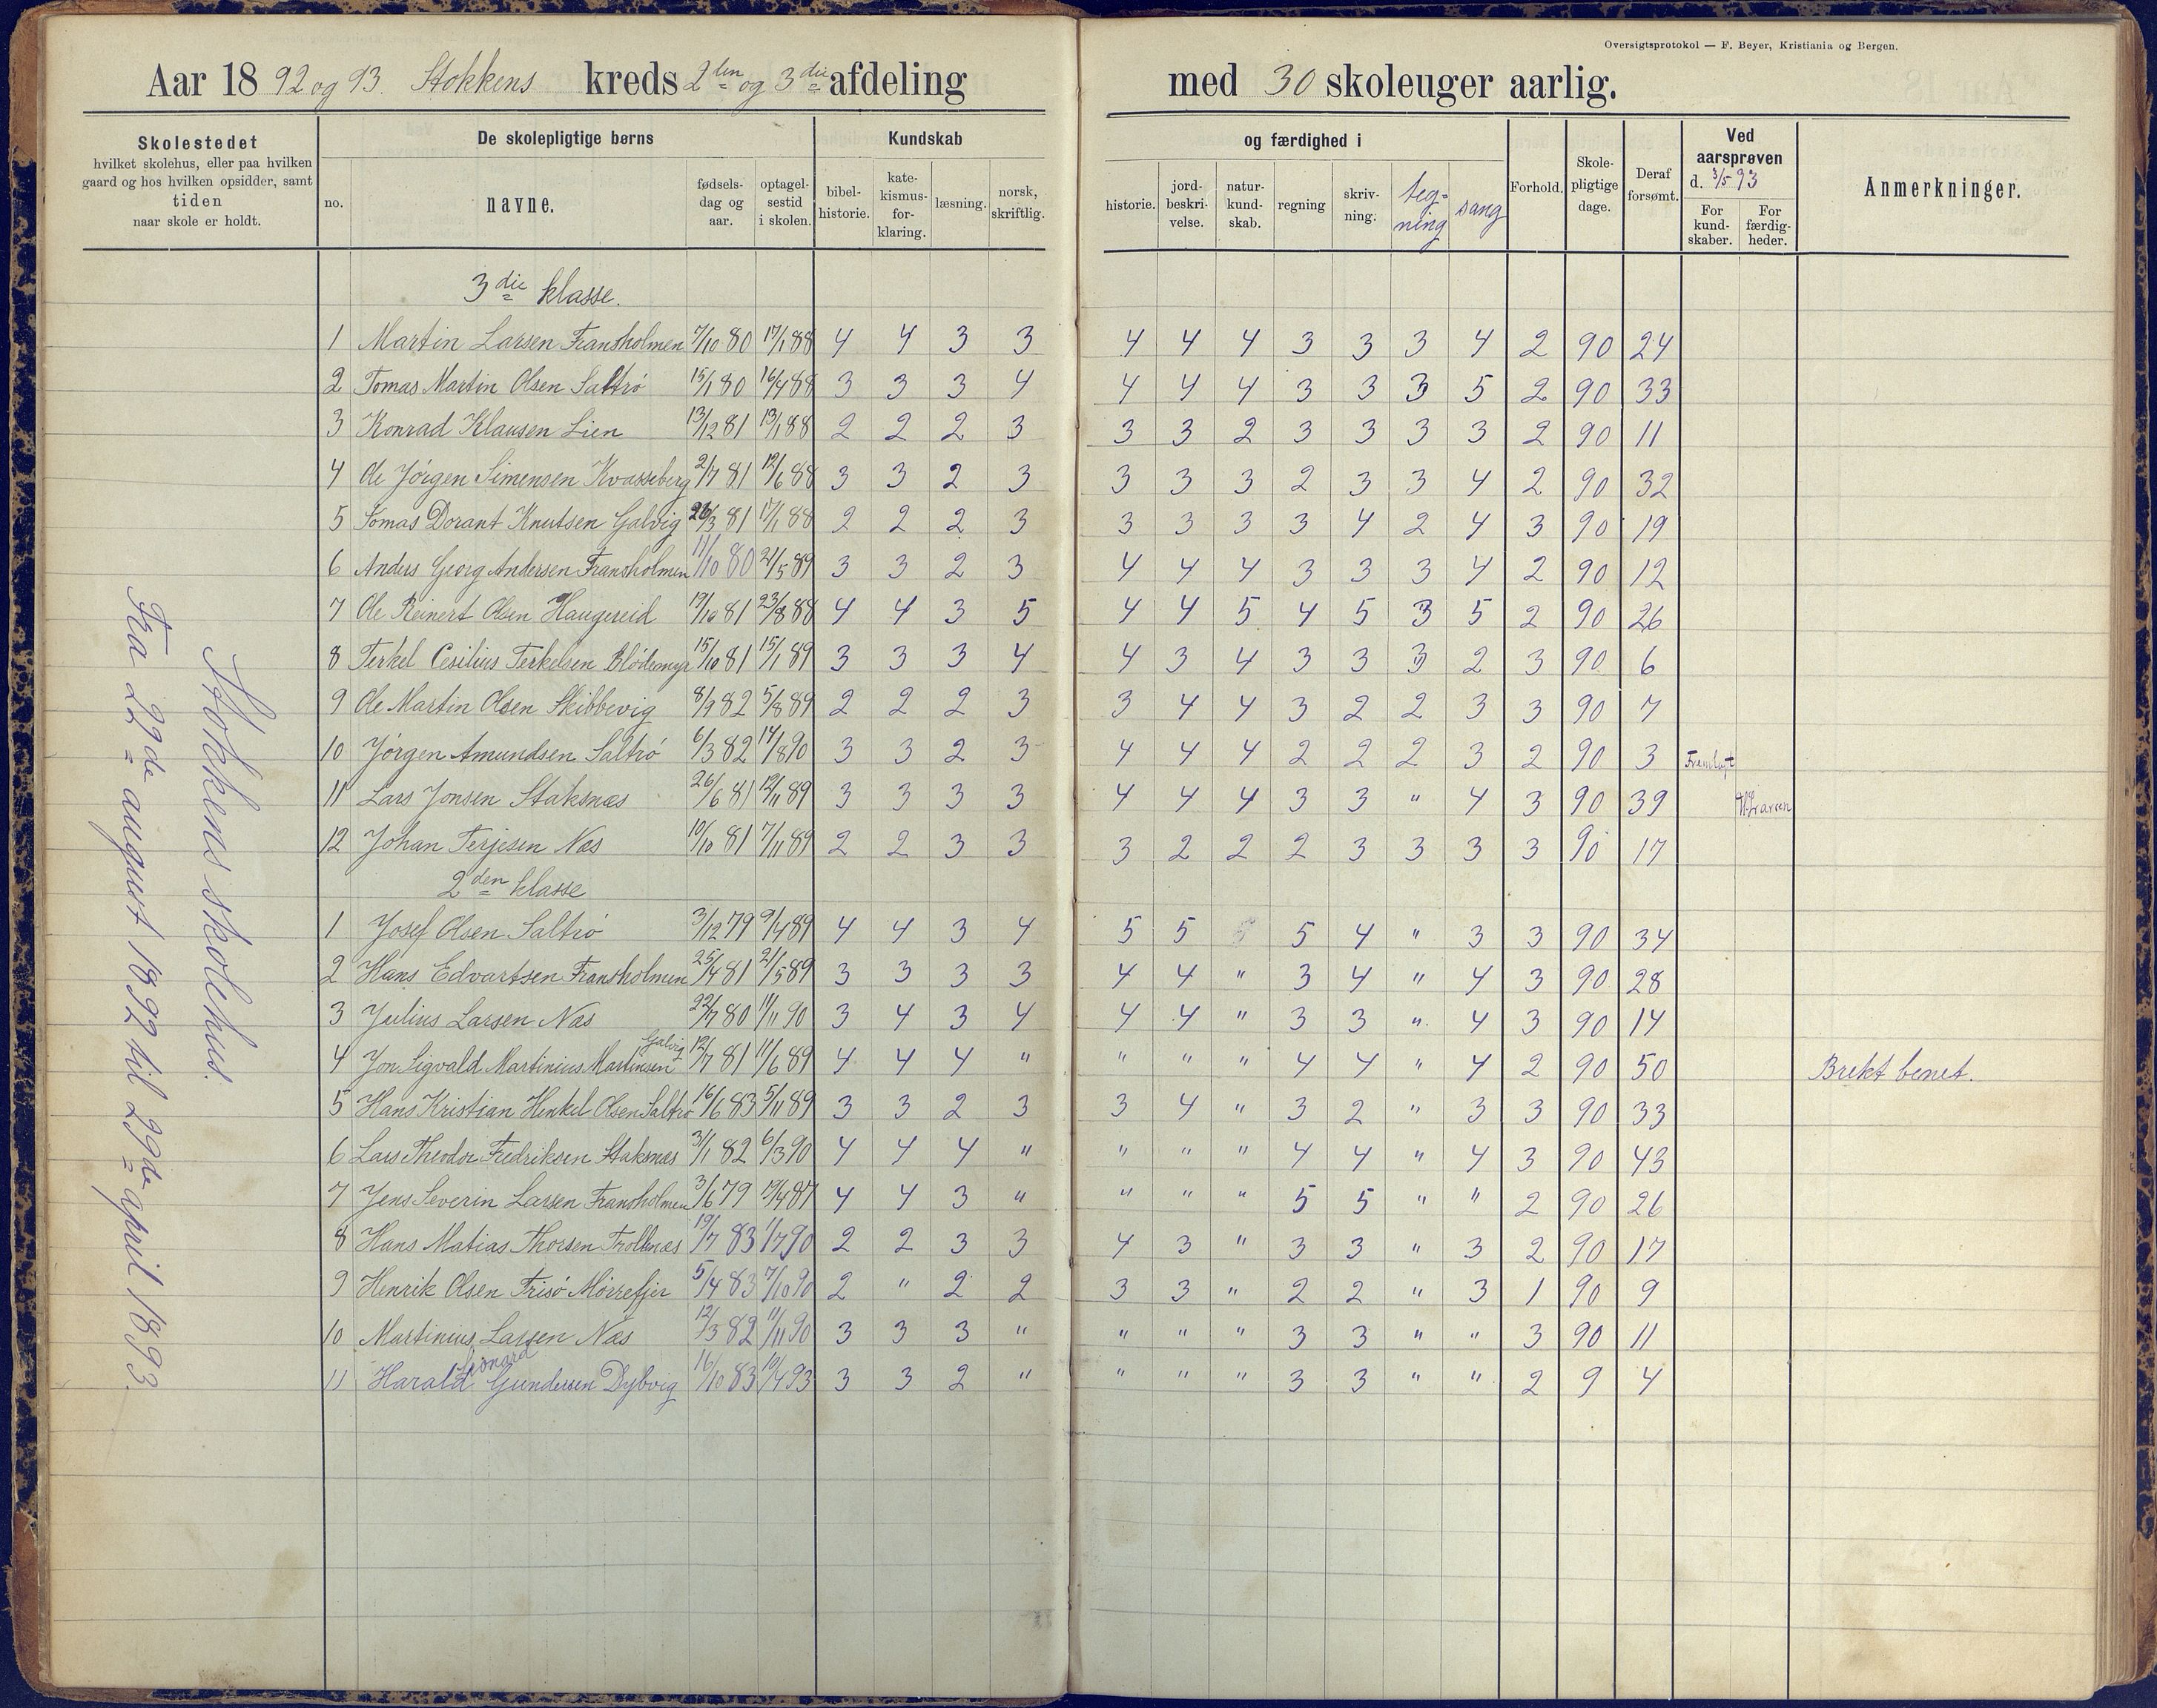 Oversigtsprotokol — F. Beyer, Kristiania og Bergen.
Aar 1892 og 93. Stokkens kreds 2den og 3die afdeling med 30 skoleuger aarlig.
Skolestedet
hvilket skolehus, eller paa hvilken
gaard og hos hvilken opsidder, samt
tiden
naar skole er holdt.
De skolepligtige børns
no.
navne.
fødsels-
dag og
aar.
optagel-
sestid
i skolen.
Kundskab
bibel-
historie.
kate-
kismus-
for-
klaring.
læsning.
norsk,
skriftlig.
og færdighed i
historie.
jord-
beskri-
velse.
natur-
kund-
skab.
regning
skriv-
ning.
teg-
ning
sang
Forhold.
Skole-
pligtige
dage.
Deraf
forsømt.
Ved
aarsprøven
d. 3/5 93
For
kund-
skaber.
For
færdig-
heder.
Anmerkninger.
Stokkens skolehus.
Fra 29de august 1892 til 29de april 1893.
3die klasse.
1 Martin Larsen Fransholmen 7/10 80 17/1 88 4 4 3 3 4 4 4 3 3 3 4 2 90 24
2 Tomas Martin Olsen Saltrö 15/1 80 16/4 88 3 3 3 4 4 4 4 3 3 3 5 2 90 33
3 Konrad Klausen Lien 13/12 81 13/1 88 2 2 2 3 3 3 2 3 3 3 3 2 90 11
4 Ole Jörgen Simensen Kvasseberg 2/7 81 12/6 88 3 3 2 3 3 3 3 2 3 3 4 2 90 32
5 Tomas Dorant Knutsen Galvig 26/3 81 17/1 88 2 2 2 3 3 3 3 3 4 2 4 3 90 19
6 Anders Georg Andersen Fransholmen 11/10 80 21/5 89 3 3 2 3 4 4 4 3 3 3 4 2 90 12
7 Ole Reinert Olsen Haugereid 19/10 81 23/8 88 4 4 3 5 4 4 5 4 5 3 5 2 90 26
8 Terkel Cesilius Terkelsen Blödemyr 15/10 81 15/1 89 3 3 3 4 4 3 4 3 3 3 2 3 90 6
9 Ole Martin Olsen Skibbevig 8/9 82 5/8 89 2 2 2 3 3 4 4 3 2 2 3 3 90 7
10 Jörgen Amundsen Saltrö 6/3 82 14/8 90 3 3 2 3 4 4 4 2 2 2 3 2 90 3 Fremlagt
11 Lars Jonsen Staksnæs 26/6 81 12/11 89 3 3 3 3 4 4 4 3 3 " 4 3 90 39
12 Johan Terjesen Næs 10/10 81 7/11 89 2 2 3 3 3 2 2 2 3 3 3 3 90 17
2den klasse
1 Josef Olsen Saltrö 3/12 79 9/4 89 4 4 3 4 5 5 5 4 " 3 3 90 34
2 Hans Edvartsen Fransholmen 25/4 81 21/5 89 3 3 3 3 4 4 " 3 4 " 4 3 90 28
3 Julius Larsen Næs 22/7 80 11/11 90 3 4 3 4 4 4 " 3 3 " 4 3 90 14
4 Jon Sigvald Martinius Martinsen Galvig 12/7 81 11/6 89 4 4 4 " " " " 4 4 " 4 2 90 50 Brekt benet.
5 Hans Kristian Henkel Olsen Saltrö 16/6 83 5/11 89 3 3 2 3 3 4 " 3 2 " 3 3 90 33
6 Lars Theodor Fredriksen Staksnæs 31/1 82 6/3 90 4 4 4 " " " " 4 4 " 4 3 90 43
7 Jens Severin Larsen Fransholmen 3/6 79 19/4 87 4 4 3 " " " " 5 5 " " 2 90 26
8 Hans Matias Thorsen Trollnæs 19/7 83 1/7 90 2 2 3 3 4 3 " 3 3 " 3 2 90 17
9 Henrik Olsen Frisö Mörrefjer 5/4 83 7/10 90 2 " 2 2 3 3 " 2 2 " 3 1 90 9
10 Martinius Larsen Næs 12/3 82 11/11 90 3 3 3 " " " " 3 3 " " 3 90 11
11 Harald Leonard Gundersen Dybvig 16/10 83 10/4 93 3 3 2 " " " " 3 3 " " 2 9 4